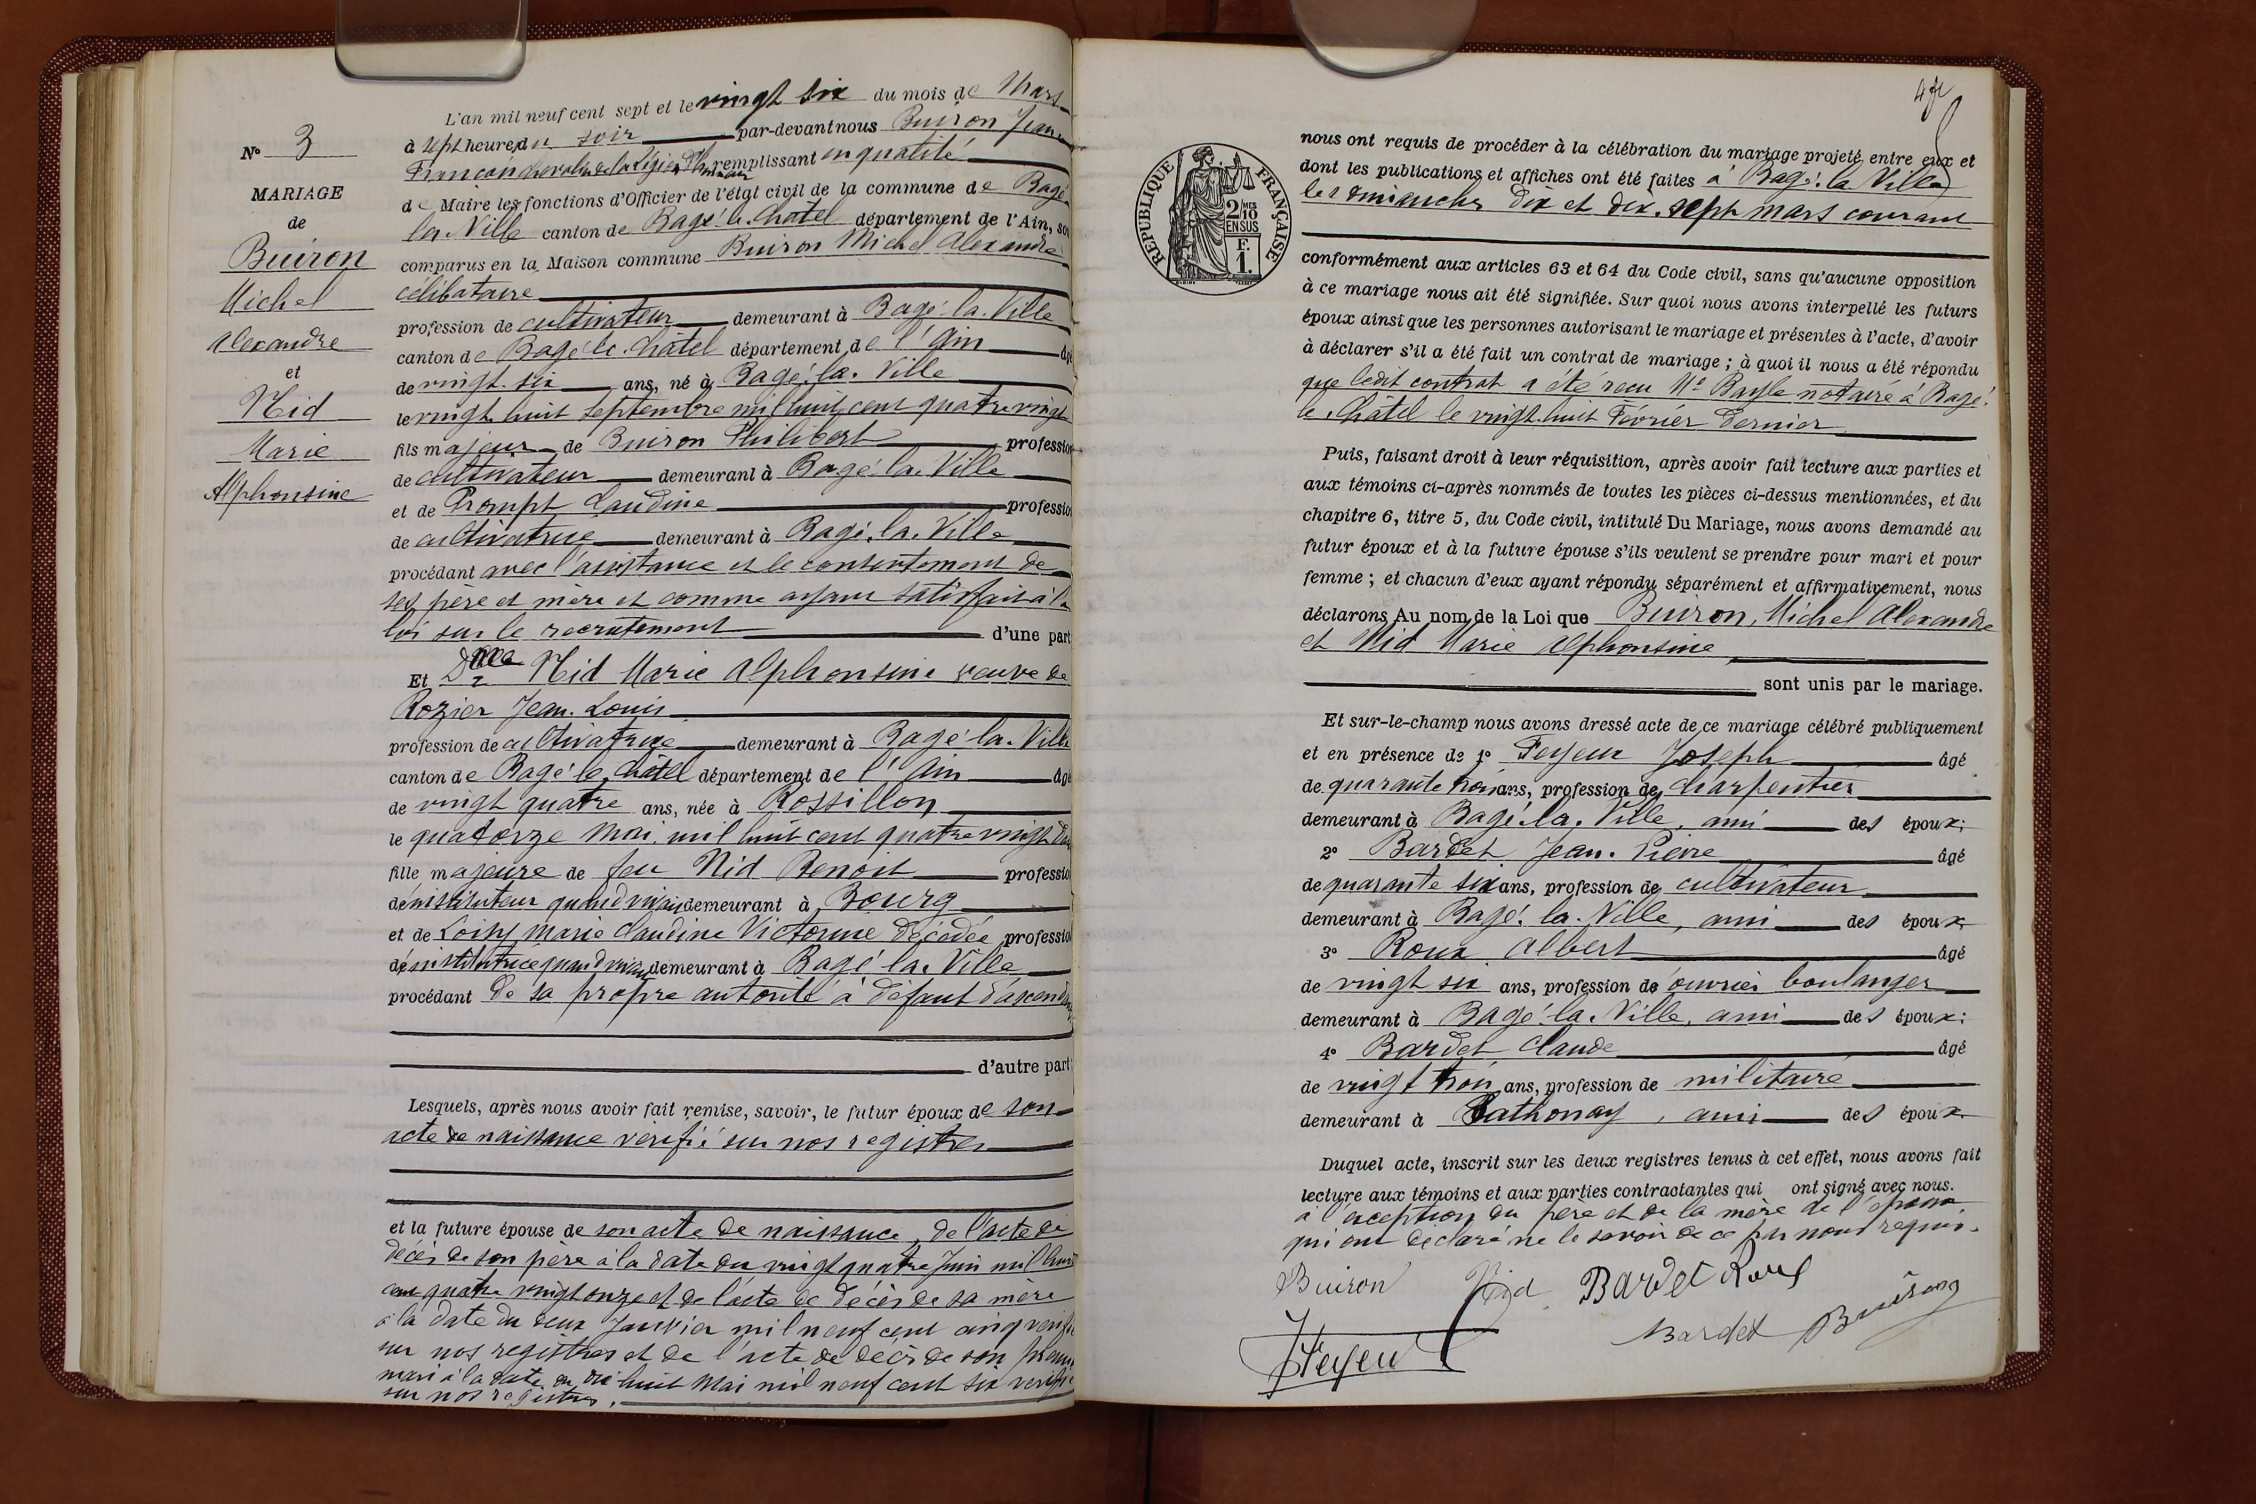 N° 3
MARIAGE
de
Buiron
Michel
Alexandre
et
Nid
Marie
Alphonsine
L'an mil neuf cent sept et le vingt six du mois de Mars
à sept heures du soir par-devant nous Buiron Jean
François chevalier de la Légion d'honneur remplissant en qualité
de Maire les fonctions d'Officier de l'état civil de la commune de Bagé
la Ville canton de Bagé le Châtel département de l'Ain, so
comparus en la Maison commune Buiron Michel Alexandre
célibataire
profession de cultivateur demeurant à Bagé la Ville
canton de Bagé le Châtel département de l'Ain âgé
de vingt six ans, né à Bagé la Ville
le vingt huit septembre mil huit cent quatre vingt
fils majeur de Buiron Philibert profession
de cultivateur demeurant à Bagé la Ville
et de Prompt Claudine profession
de cultivatrice demeurant à Bagé la Ville
procédant avec l'assistance et le consentement de
ses père et mère et comme ayant satisfait à la
loi sur le recrutement d'une part
Et Dme Nid Marie Alphonsine veuve de
Rozier Jean Louis
profession de cultivatrice demeurant à Bagé la Ville
canton de Bagé le Châtel département de l'Ain âgé
de vingt quatre ans, née à Rossillon
le quatorze Mai mil huit cent quatre vingt
fille majeure de feu Nid Benoit profession
d'instituteur quand vivait demeurant à Bourg
et de Loisy Marie Claudine Victorine décédée profession
d'institutrice quand vivait demeurant à Bagé la Ville
procédant de sa propre autorité à défaut d'ascendants
d'autre part
Lesquels, après nous avoir fait remise, savoir, le futur époux de son
acte de naissance vérifié sur nos registres
et la future épouse de son acte de naissance, de l'acte de
décès de son père à la date du vingt quatre Juin mil huit
cent quatre vingt onze et de l'acte de décès de sa mère
à la date du deux Janvier mil neuf cent cinq vérifié
sur nos registres et de l'acte de décès de son premier
mari à la date du dix huit Mai mil neuf cent six vérifié
sur nos registres.
RÉPUBLIQUE FRANÇAISE
2 MES
10
EN SUS
F.
1.
nous ont requis de procéder à la célébration du mariage projeté entre eux et
dont les publications et affiches ont été faites à Bagé la Ville
les dimanches dix et dix sept mars courant
conformément aux articles 63 et 64 du Code civil, sans qu'aucune opposition
à ce mariage nous ait été signifiée. Sur quoi nous avons interpellé les futurs
époux ainsi que les personnes autorisant le mariage et présentes à l'acte, d'avoir
à déclarer s'il a été fait un contrat de mariage ; à quoi il nous a été répondu
que ledit contrat a été reçu Me Bayle notaire à Bagé
le Châtel le vingt huit Février dernier
Puis, faisant droit à leur réquisition, après avoir fait lecture aux parties et
aux témoins ci-après nommés de toutes les pièces ci-dessus mentionnées, et du
chapitre 6, titre 5, du Code civil, intitulé Du Mariage, nous avons demandé au
futur époux et à la future épouse s'ils veulent se prendre pour mari et pour
femme ; et chacun d'eux ayant répondu séparément et affirmativement, nous
déclarons Au nom de la Loi que Buiron, Michel Alexandre
et Nid Marie Alphonsine
sont unis par le mariage.
Et sur-le-champ nous avons dressé acte de ce mariage célébré publiquement
et en présence de 1° Feyeux Joseph âgé
de quarante trois ans, profession de charpentier
demeurant à Bagé la Ville, ami des époux;
2° Bardet Jean Pierre âgé
de quarante six ans, profession de cultivateur
demeurant à Bagé la Ville, ami des époux
3° Roux Albert âgé
de vingt six ans, profession de ouvrier boulanger
demeurant à Bagé la Ville, ami des époux;
4° Bardet Claude âgé
de vingt trois ans, profession de militaire
demeurant à Sathonay, ami des époux
Duquel acte, inscrit sur les deux registres tenus à cet effet, nous avons fait
lecture aux témoins et aux parties contractantes qui ont signé avec nous.
à l'exception du père et de la mère de l'époux
qui ont déclaré ne le savoir de ce par nous requis.
Buiron Nid Bardet Roux
Bardet Buiron
Feyeux